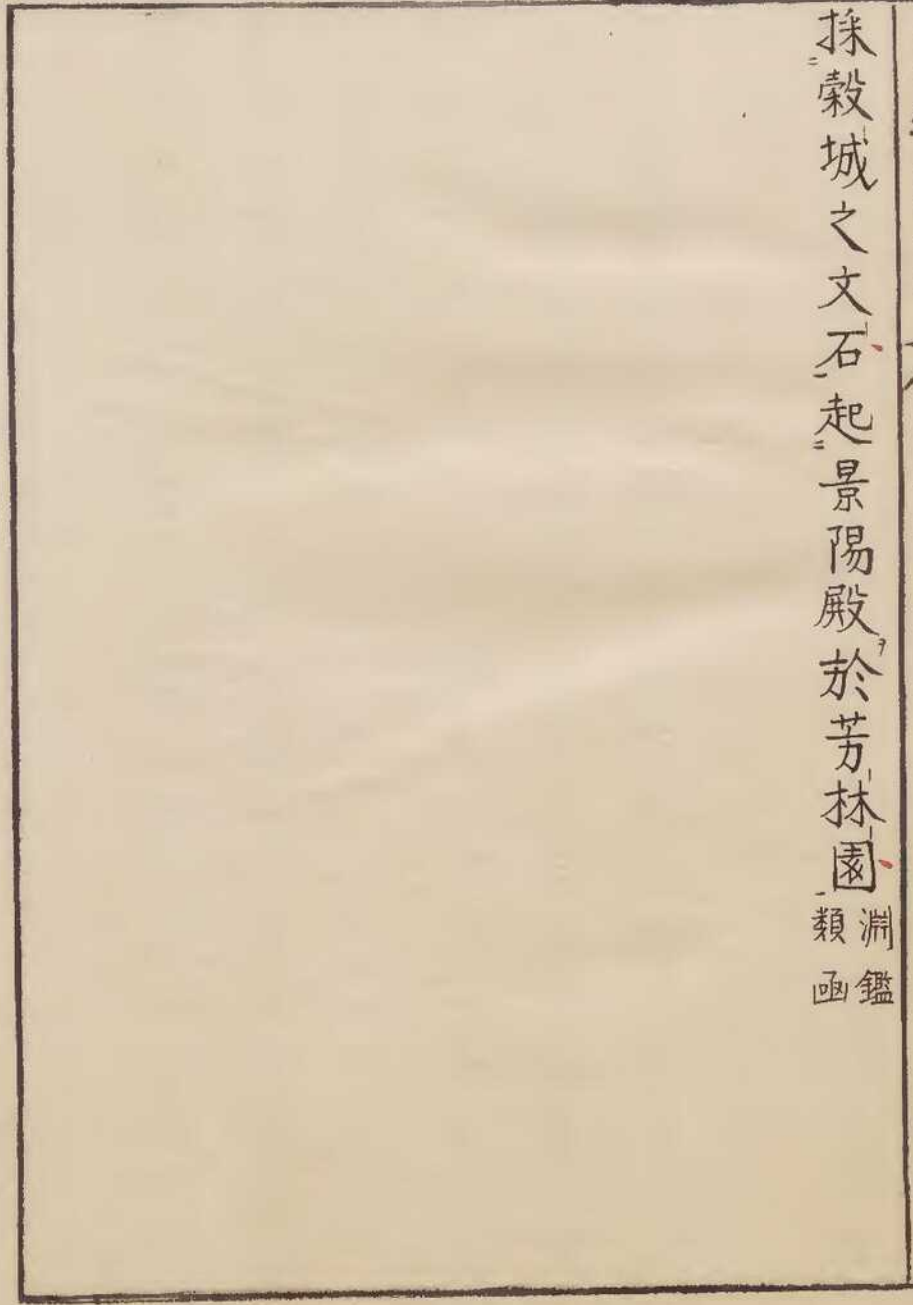 採穀城之文石起景陽殿於芳林園淵鑑類函